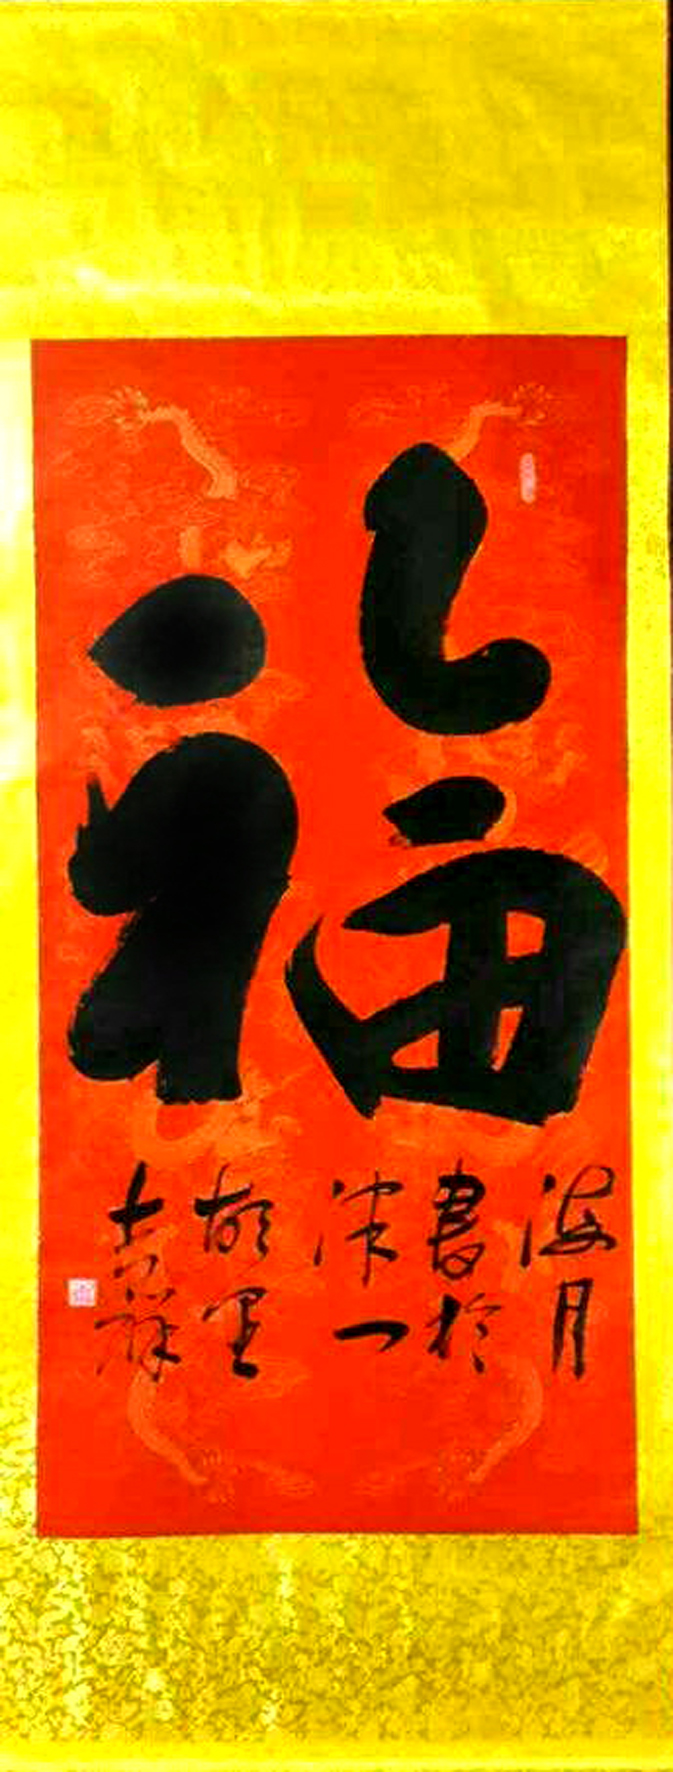 福
海月
書於
津門
故里
吉祥